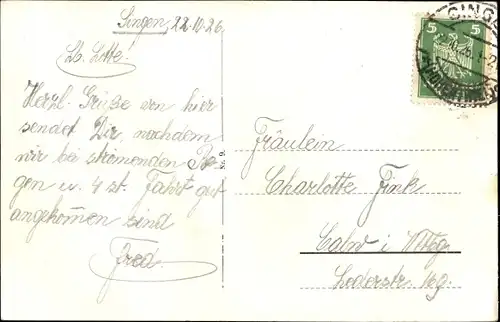 Singen, 22.10.26.
Lb. Lotte!
Herzl. Grüße von hier
sendet Dir, nachdem
wir bei strömenden Re-
gen u. 4 st. Fahrt gut
angekommen sind
Fred.
Nr. 9.
Fräulein
Charlotte Fink
Calw i Wttbg
Lederstr.
5 5
SINGEN
(HOHENTWIEL)